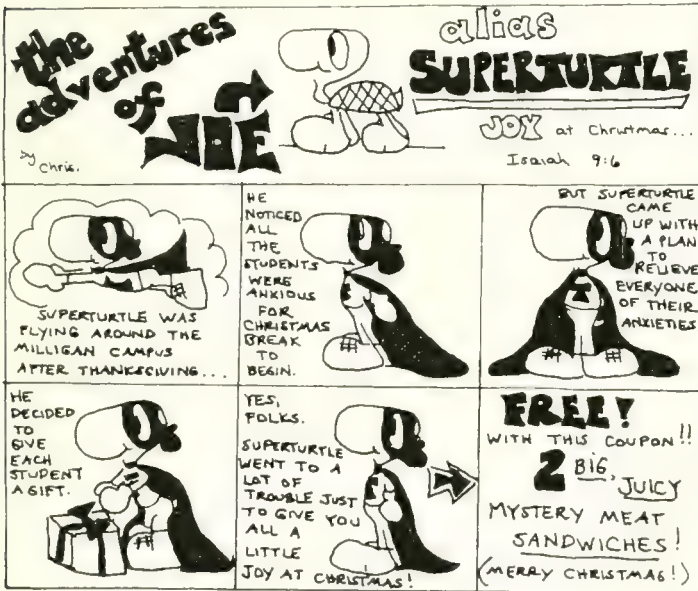 the
adventures
of
JOE
by Chris.
alias
SUPERTURTLE
JOY at Christmas...
Isaiah 9:6
SUPERTURTLE WAS
FLYING AROUND THE
MILLIGAN CAMPUS
AFTER THANKSGIVING...
HE
NOTICED
ALL
THE
STUDENTS
WERE
ANXIOUS
FOR
CHRISTMAS
BREAK
TO
BEGIN.
BUT SUPERTURTLE
CAME
UP WITH
A PLAN
TO
RELIEVE
EVERYONE
OF THEIR
ANXIETIES
HE
DECIDED
TO
GIVE
EACH
STUDENT
A GIFT.
YES,
FOLKS.
SUPERTURTLE
WENT TO A
LOT OF
TROUBLE JUST
TO GIVE YOU
ALL A
LITTLE
JOY AT CHRISTMAS!
FREE!
WITH THIS COUPON!!
2 BIG,
JUICY
MYSTERY MEAT
SANDWICHES!
(MERRY CHRISTMAS!)